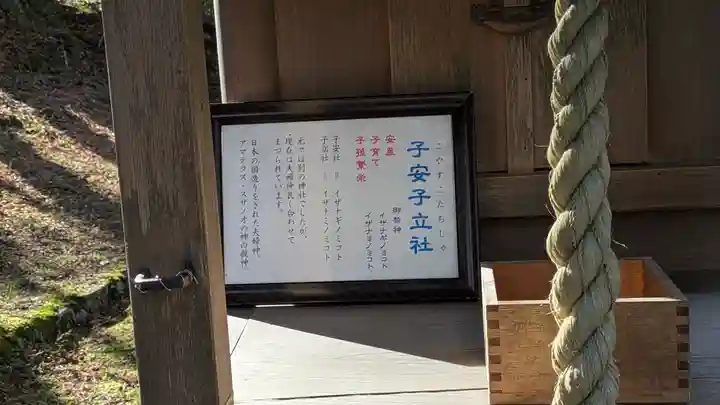 こやすこたちしゃ
子安子立社
安産
子育て
子孫繁栄
御祭神
イザナギノミコト
イザナミノミコト
子安社 = イザナギノミコト
子立社 = イザナミノミコト
元々は別の神社でしたが、
現在は夫婦仲良く合わせて
まつられています。
日本の国造りをされた夫婦神
アマテラス・スサノオの神の親神